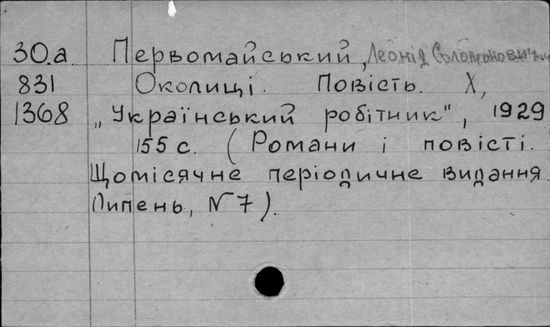 30.а. Первомайський, Леонід Соломонович
831 Околиці. Повість. Х,
1368 „Український робітник", 1929
155 с. (Романи і повісті.
Щомісячне періодичне видання.
Липень, №7).